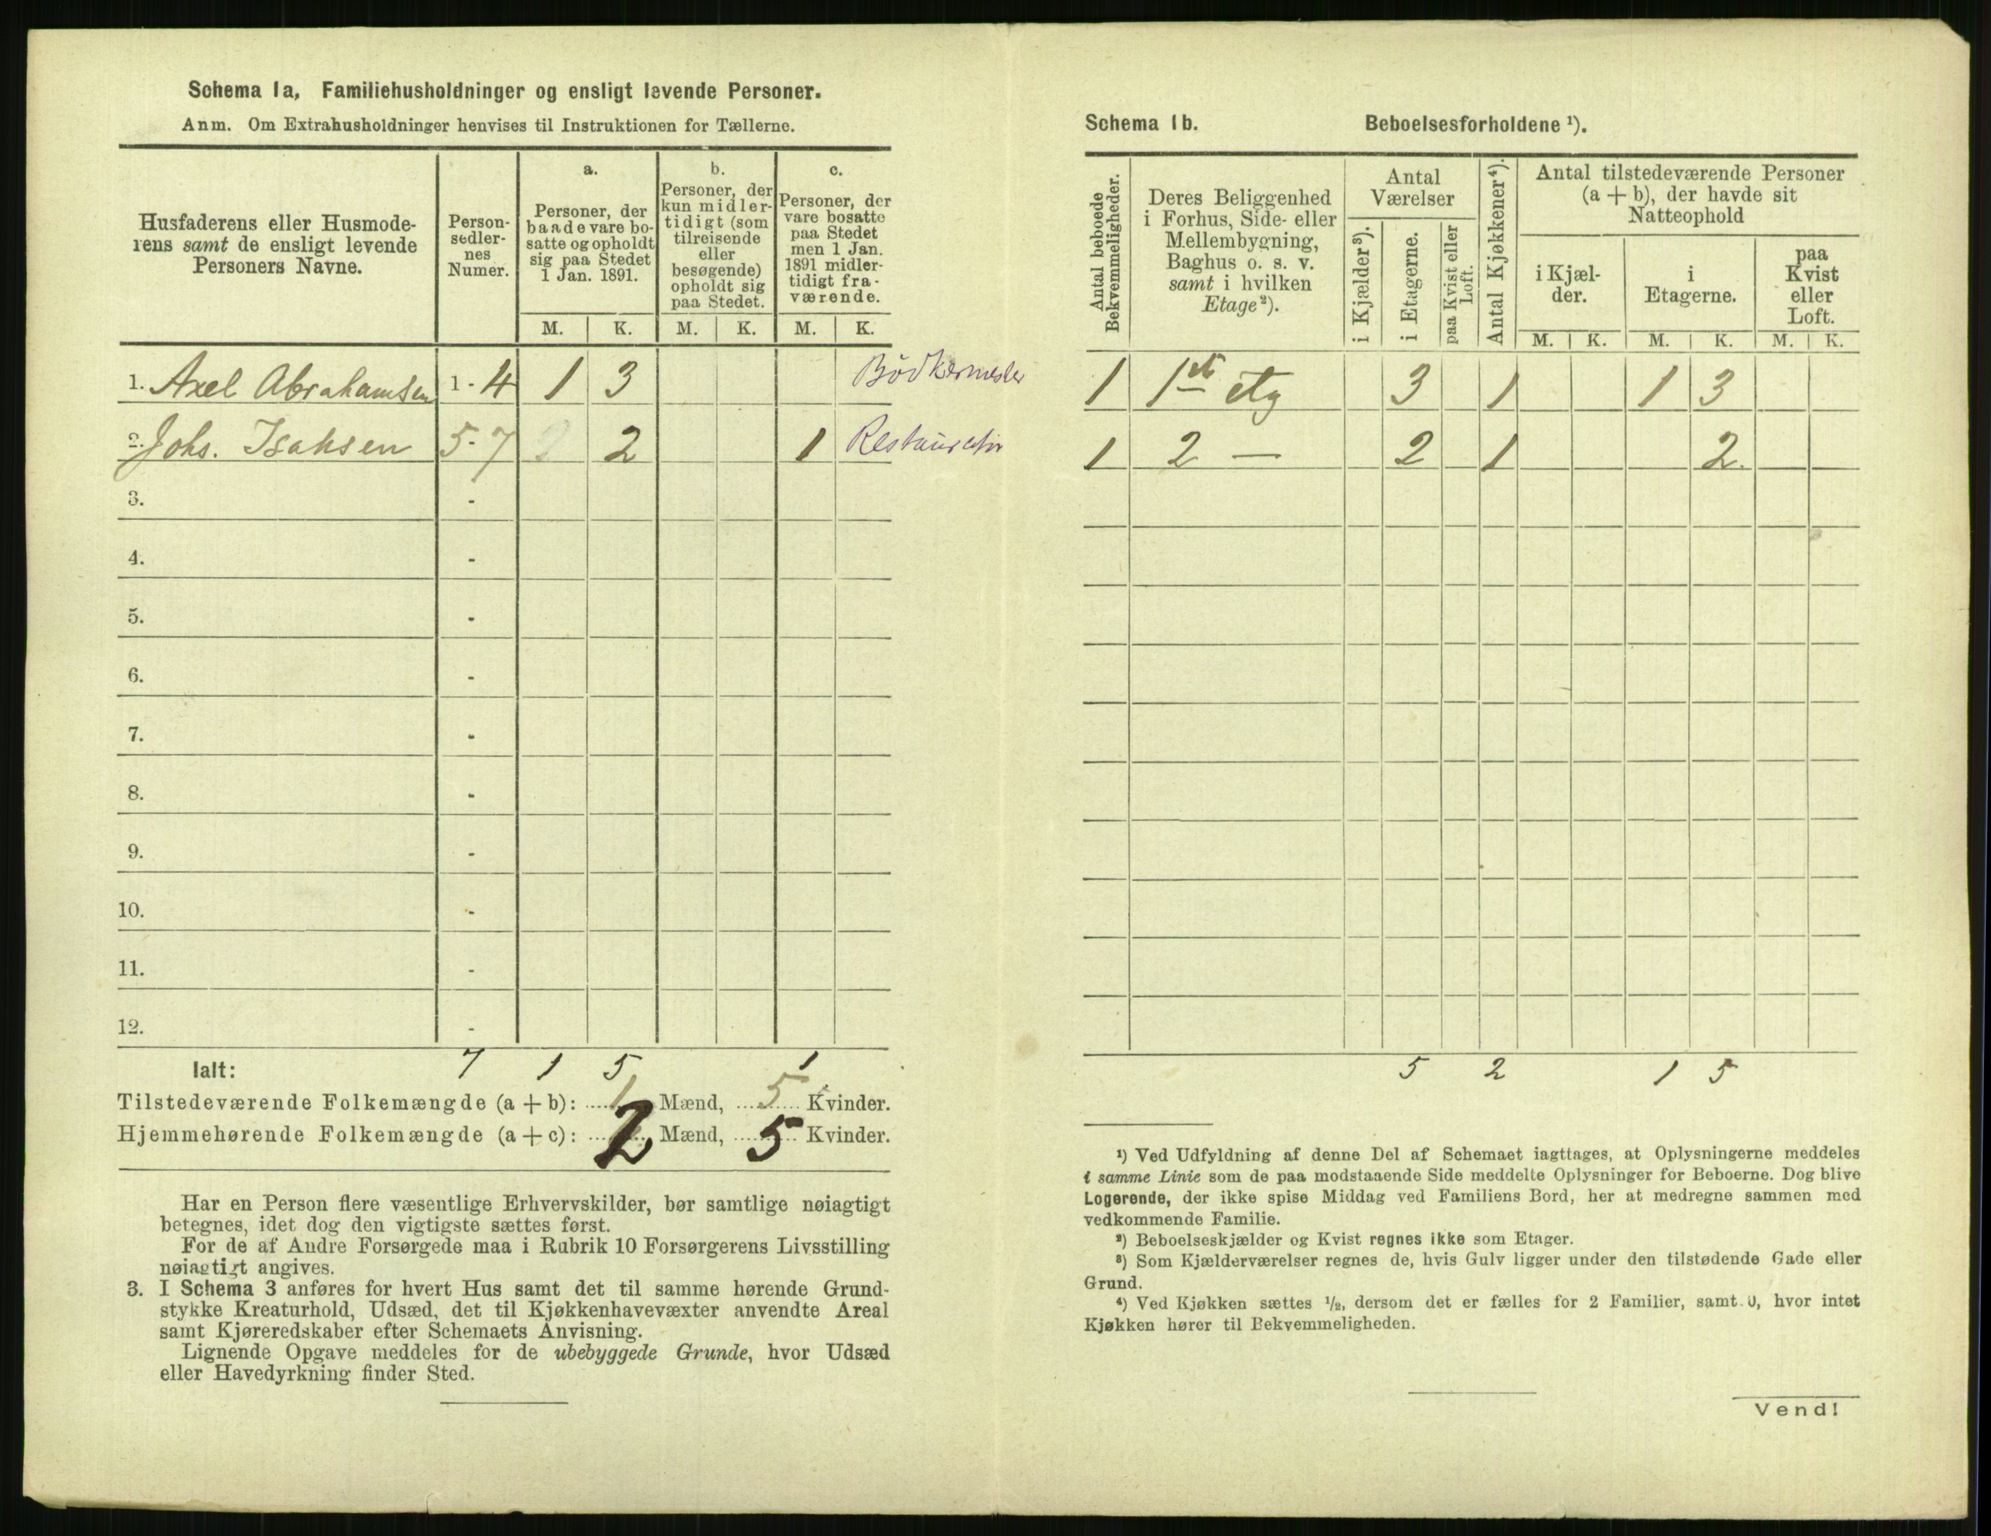 Schema 1a, Familiehusholdninger og ensligt levende Personer.
Anm. Om Extrahusholdninger henvises til Instruktionen for Tællerne.
Husfaderens eller Husmode-
rens samt de ensligt levende
Personers Navne.
Person-
sedler-
nes
Numer.
a.
Personer, der
baade vare bo-
satte og opholdt
sig paa Stedet
1 Jan. 1891.
b.
Personer, der
kun midler-
tidigt (som
tilreisende
eller
besøgende)
opholdt sig
paa Stedet.
c.
Personer, der
vare bosatte
paa Stedet
men 1 Jan.
1891 midler-
tidigt fra-
værende.
M. K. M. K. M. K.
1. Axel Abrahamsen 1 - 4 1 3 Bödkermester
2. Johs. Isaksen 5 - 7 2 1 Restauratør
3. -
4. -
5. -
6. -
7. -
8. -
9. -
10. -
11. -
12. -
Ialt: 7 1 5 1
Tilstedeværende Folkemængde (a + b): 1 Mænd, 5 Kvinder.
Hjemmehørende Folkemængde (a + c): 2 Mænd, 5 Kvinder.
Har en Person flere væsentlige Erhvervskilder, bør samtlige nøiagtigt
betegnes, idet dog den vigtigste sættes først.
For de af Andre Forsørgede maa i Rubrik 10 Forsørgerens Livsstilling
nøiagtigt angives.
3. I Schema 3 anføres for hvert Hus samt det til samme hørende Grund-
stykke Kreaturhold, Udsæd, det til Kjøkkenhavevæxter anvendte Areal
samt Kjøreredskaber efter Schemaets Anvisning.
Lignende Opgave meddeles for de ubebyggede Grunde, hvor Udsæd
eller Havedyrkning finder Sted.
Schema 1b. Beboelsesforholdene ¹).
Antal beboede
Bekvemmeligheder.
Deres Beliggenhed
i Forhus, Side- eller
Mellembygning,
Baghus o. s. v.
samt i hvilken
Etage²).
Antal
Værelser
i Kjælder³).
i Etagerne.
paa Kvist eller
Loft.
Antal Kjøkkener⁴).
Antal tilstedeværende Personer
(a + b), der havde sit
Natteophold
i Kjæl-
der.
i
Etagerne.
paa
Kvist
eller
Loft.
M. K. M. K. M. K.
1 1st etg 3 1 1 3
1 2 — 2 1 2.
5 2 1 5
¹) Ved Udfyldning af denne Del af Schemaet iagttages, at Oplysningerne meddeles
i samme Linie som de paa modstaaende Side meddelte Oplysninger for Beboerne. Dog blive
Logerende, der ikke spise Middag ved Familiens Bord, her at medregne sammen med
vedkommende Familie.
²) Beboelseskjælder og Kvist regnes ikke som Etager.
³) Som Kjælderværelser regnes de, hvis Gulv ligger under den tilstødende Gade eller
Grund.
⁴) Ved Kjøkken sættes ½, dersom det er fælles for 2 Familier, samt 0, hvor intet
Kjøkken hører til Bekvemmeligheden.
Vend!